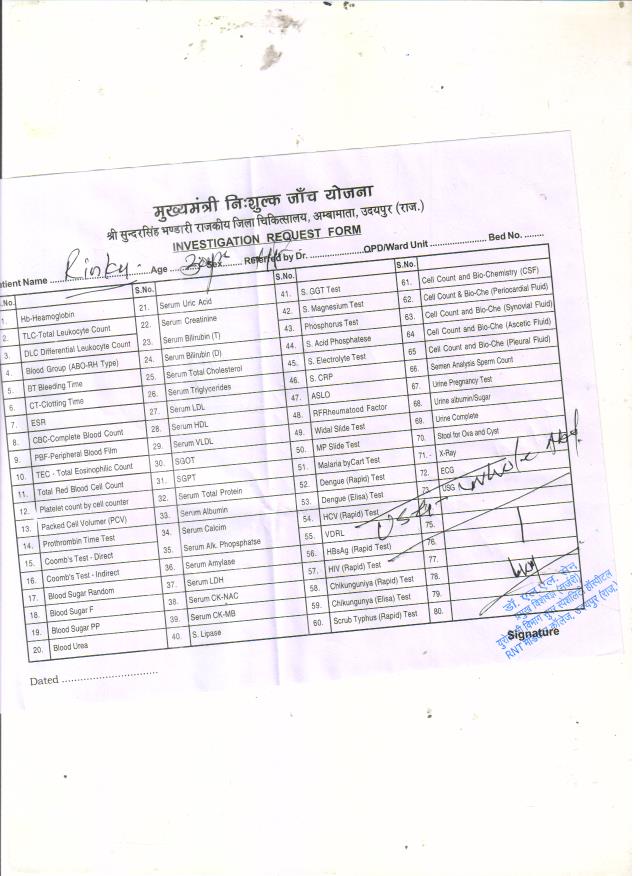 मुख्यमंत्री निःशुल्क जाँच योजना
श्री सुन्दरसिंह भण्डारी राजकीय जिला चिकित्सालय, अम्बामाता, उदयपुर (राज.)
INVESTIGATION REQUEST FORM
atient Name Rinky Age ........ Sex........ Referred by Dr. .................... OPD/Ward Unit .................... Bed No. .......
S.No.
1. Hb-Heamoglobin
2. TLC-Total Leukocyte Count
3. DLC Differential Leukocyte Count
4. Blood Group (ABO-RH Type)
5. BT Bleeding Time
6. CT-Clotting Time
7. ESR
8. CBC-Complete Blood Count
9. PBF-Peripheral Blood Film
10. TEC - Total Eosinophilic Count
11. Total Red Blood Cell Count
12. Platelet count by cell counter
13. Packed Cell Volumer (PCV)
14. Prothrombin Time Test
15. Coomb's Test - Direct
16. Coomb's Test - Indirect
17. Blood Sugar Random
18. Blood Sugar F
19. Blood Sugar PP
20. Blood Urea
S.No.
21. Serum Uric Acid
22. Serum Creatinine
23. Serum Bilirubin (T)
24. Serum Bilirubin (D)
25. Serum Total Cholesterol
26. Serum Triglycerides
27. Serum LDL
28. Serum HDL
29. Serum VLDL
30. SGOT
31. SGPT
32. Serum Total Protein
33. Serum Albumin
34. Serum Calcim
35. Serum Alk. Phopsphatse
36. Serum Amylase
37. Serum LDH
38. Serum CK-NAC
39. Serum CK-MB
40. S. Lipase
S.No.
41. S. GGT Test
42. S. Magnesium Test
43. Phosphorus Test
44. S. Acid Phosphatese
45. S. Electrolyte Test
46. S. CRP
47. ASLO
48. RFRheumatood Factor
49. Widal Slide Test
50. MP Slide Test
51. Malaria byCart Test
52. Dengue (Rapid) Test
53. Dengue (Elisa) Test
54. HCV (Rapid) Test
55. VDRL
56. HBsAg (Rapid Test)
57. HIV (Rapid) Test
58. Chikunguniya (Rapid) Test
59. Chikungunya (Elisa) Test
60. Scrub Typhus (Rapid) Test
S.No.
61. Cell Count and Bio-Chemistry (CSF)
62. Cell Count & Bio-Che (Periocardial Fluid)
63. Cell Count and Bio-Che (Synovial Fluid)
64 Cell Count and Bio-Che (Ascetic Fluid)
65 Cell Count and Bio-Che (Pleural Fluid)
66. Semen Analysis Sperm Count
67. Urine Pregnancy Test
68. Urine albumin/Sugar
69. Urine Complete
70. Stool for Ova and Cyst
71. - X-Ray
72. ECG
73. USG
75.
76.
77.
78.
79.
80.
USG whole Abd.
डॉ. एल.एल. सेन
प्रमुख विशेषज्ञ (सर्जरी)
यूरोलॉजी विभाग सुपर स्पेशलिटी हॉस्पीटल
RNT मेडिकल कॉलेज, उदयपुर (राज.)
Signature
Dated ............................